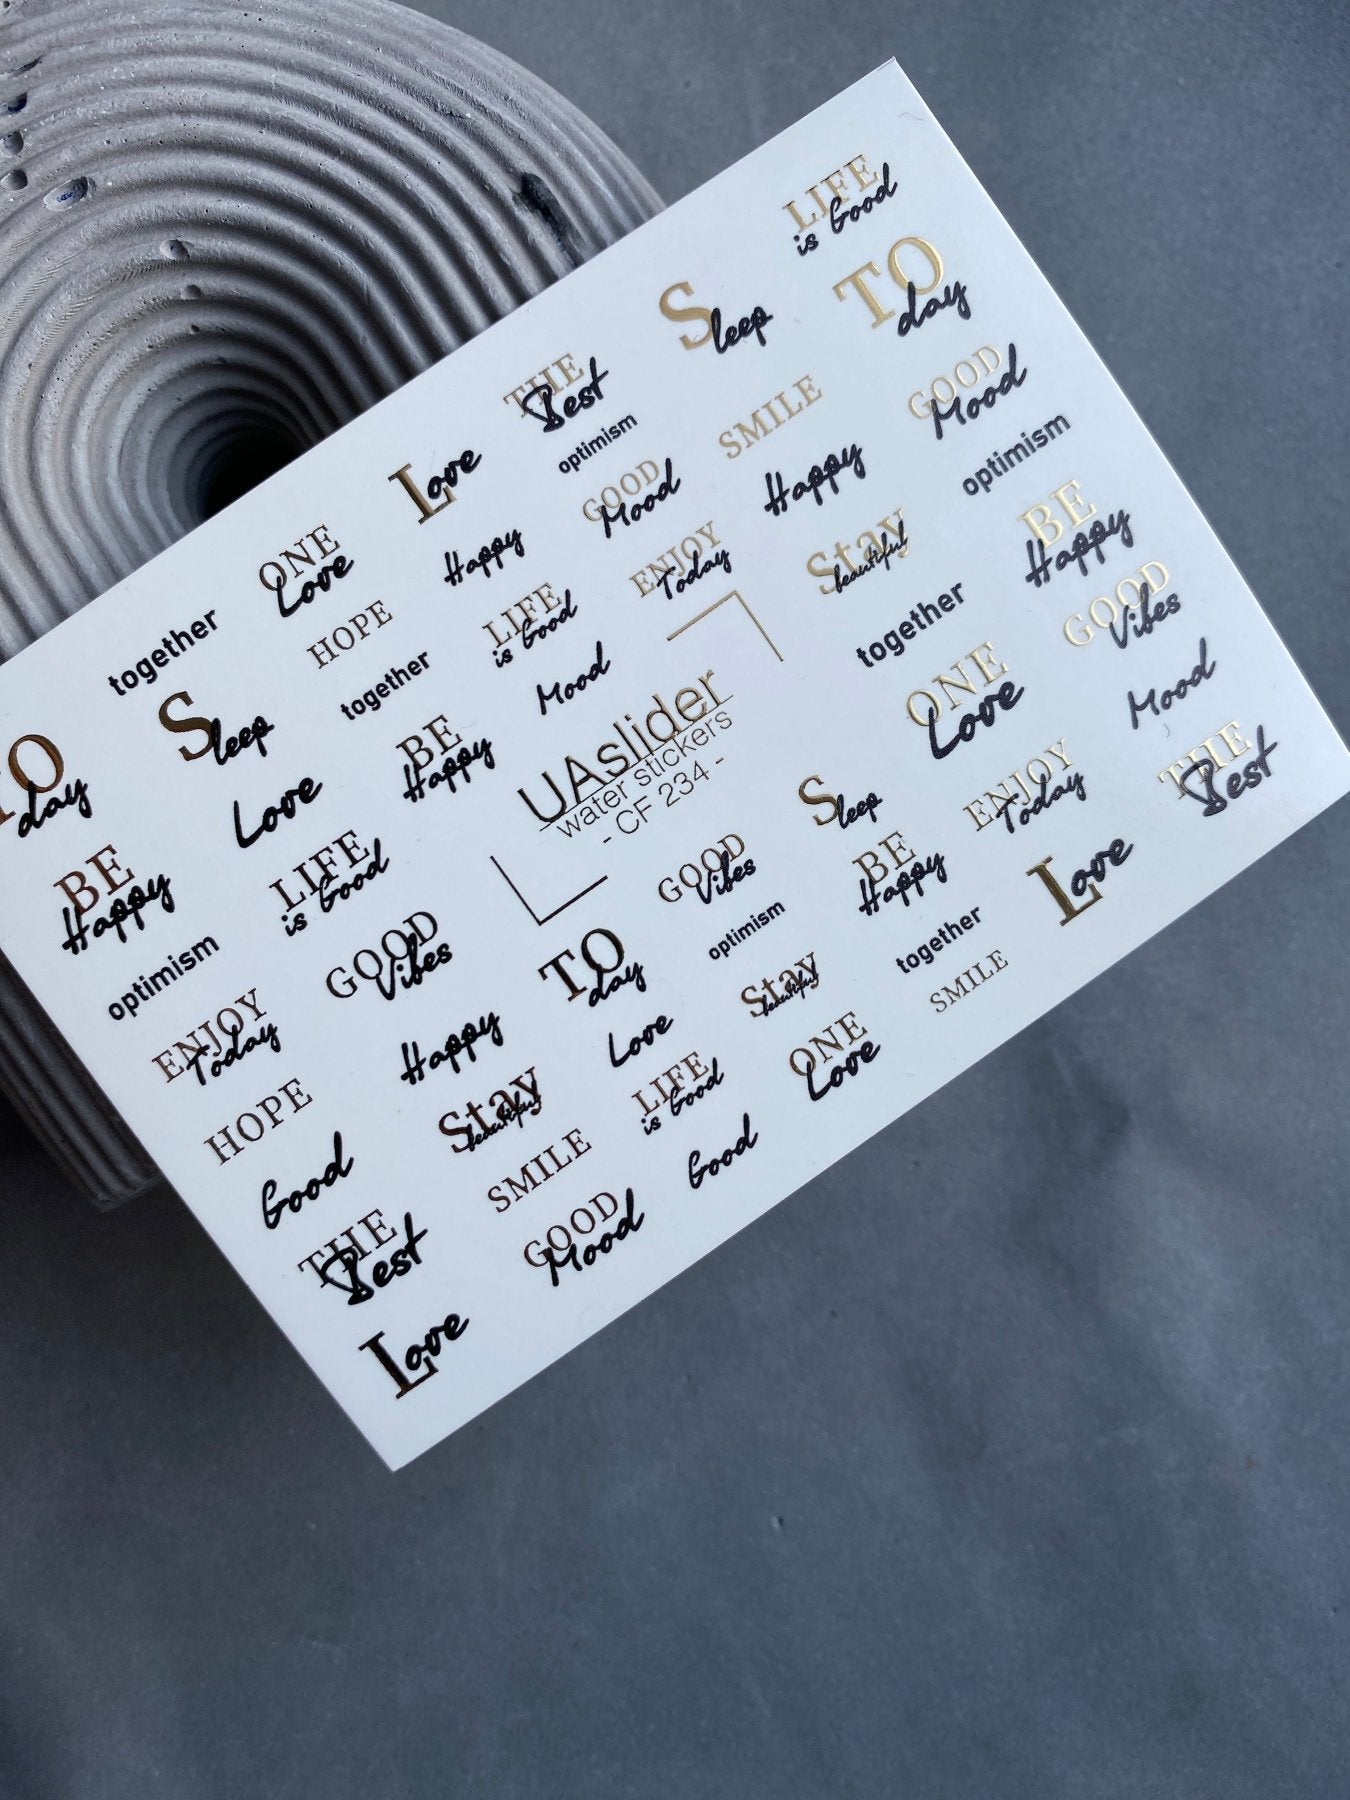 LIFE
is Good
TO
day
Sleep
THE
Best
GOOD
Mood
SMILE
optimism
Love
optimism
GOOD
Mood
Happy
BE
Happy
ONE
Love
Happy
ENJOY
Today
Stay
beautiful
GOOD
Vibes
together
HOPE
LIFE
is Good
together
Mood
Sleep
together
Mood
ONE
Love
THE
Best
TO
day
BE
Happy
UAslider
water stickers
- CF 234 -
Love
Sleep
ENJOY
Today
BE
Happy
LIFE
is Good
GOOD
Vibes
BE
Happy
Love
optimism
GOOD
Vibes
TO
day
optimism
together
ENJOY
Today
Stay
beautiful
SMILE
Happy
Love
ONE
Love
HOPE
Stay
beautiful
LIFE
is Good
Good
SMILE
Good
THE
Best
GOOD
Mood
Love